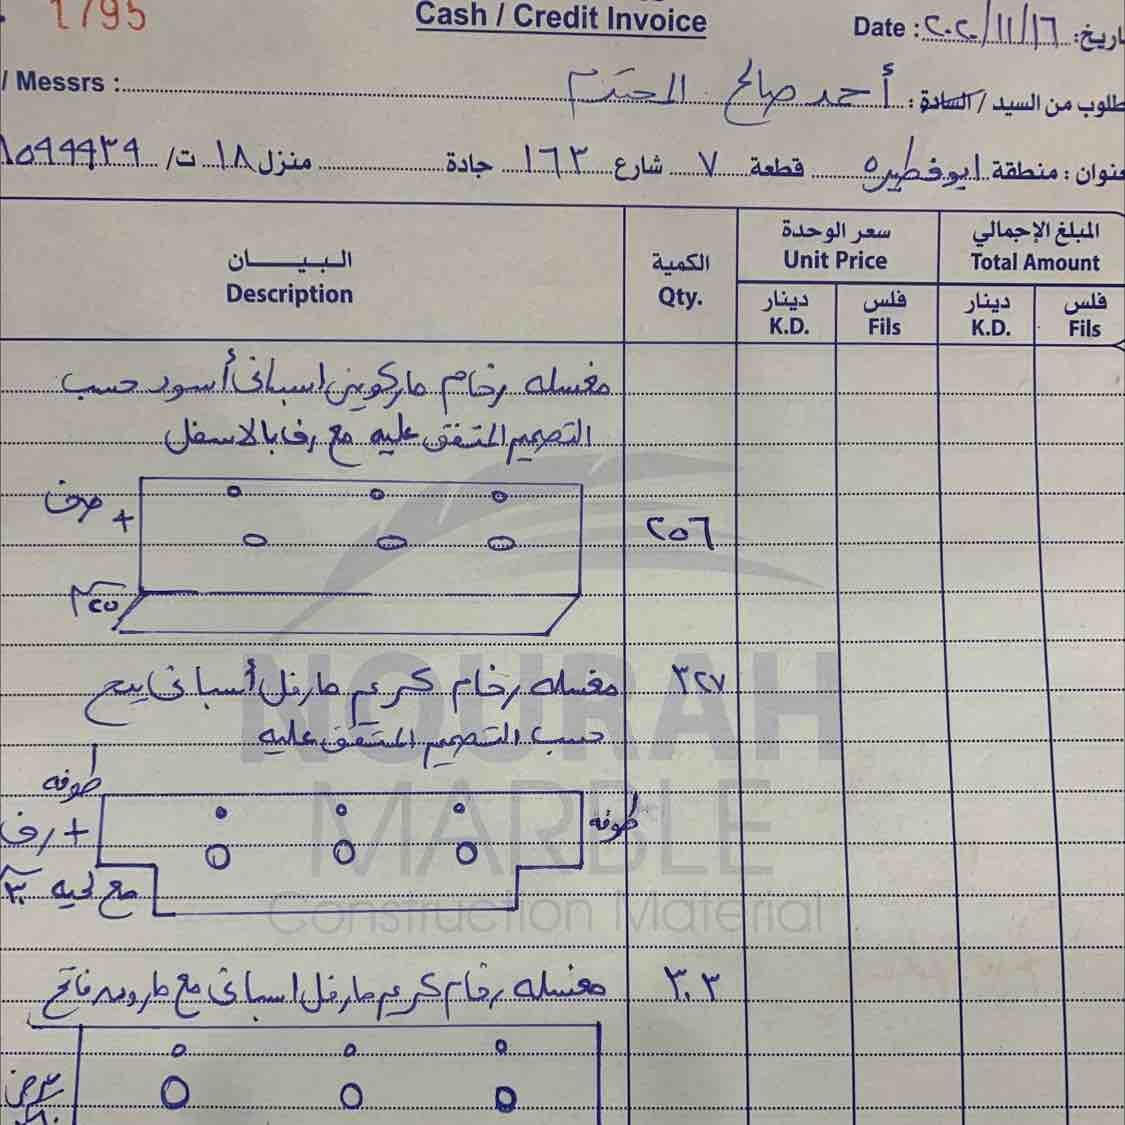 1795
Cash / Credit Invoice
Date : ٢٠٢٠/١١/١٦ :اريخ
/ Messrs :
طلوب من السيد / السادة : أحمد صالح المحترم
عنوان : منطقة ابوفطيره قطعة ٧ شارع ١٦٣ جادة منزل ١٨ ت/
البيــــان الكمية سعر الوحدة المبلغ الإجمالي
Description Qty. Unit Price Total Amount
دينار فلس دينار فلس
K.D. Fils K.D. Fils
مغسله رخام ماركوينا اسباني أسود حسب
التصميم المتفق عليه مع رف بالاسفل
+
٢٥٦
٢٥
مغسله رخام كريم مارفل أسباني بيج ٣٢٧
حسب التصميم المتفق عليه
طوفه
طوفه
+ رف
مع لحيه ٣٠
مغسله رخام كريم مارفل اسباني مع فاتح ٣٠٣
NOURAH
MARBLE
Construction Material